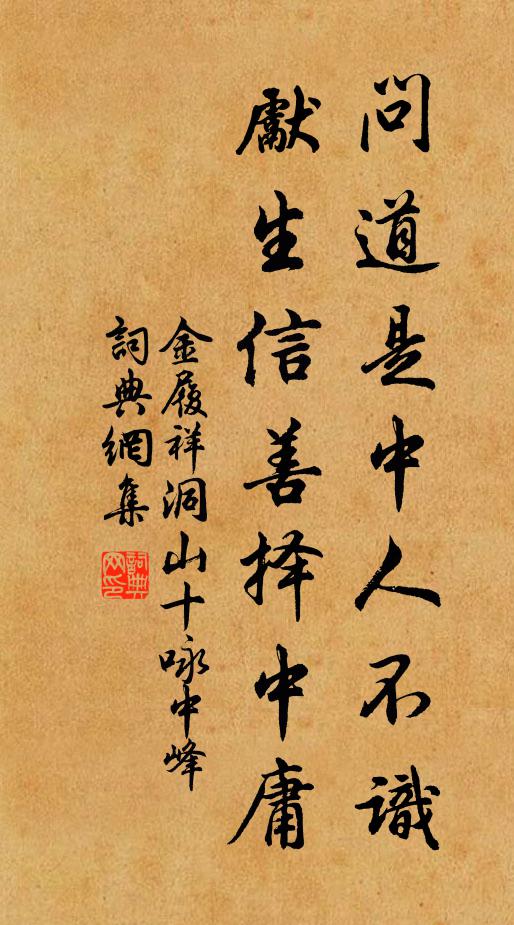 问道是中人不識
獻生信善择中庸
金履祥洞山十咏中峰
詞典網集
詞典网印